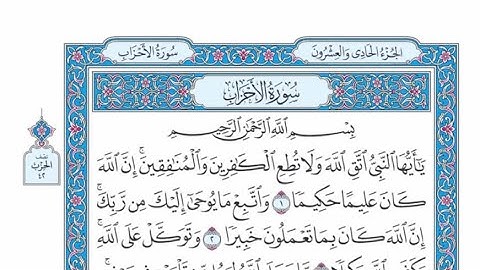 الجُزْءُ الحَادِي وَالعِشْرُونَ
سُورَةُ الأَحْزَابِ
سُورَةُ الأَحْزَابِ
بِسْمِ اللَّهِ الرَّحْمَٰنِ الرَّحِيمِ
يَٰٓأَيُّهَا ٱلنَّبِيُّ ٱتَّقِ ٱللَّهَ وَلَا تُطِعِ ٱلْكَٰفِرِينَ وَٱلْمُنَٰفِقِينَۚ إِنَّ ٱللَّهَ
كَانَ عَلِيمًا حَكِيمًا ١ وَٱتَّبِعْ مَا يُوحَىٰٓ إِلَيْكَ مِن رَّبِّكَۚ
إِنَّ ٱللَّهَ كَانَ بِمَا تَعْمَلُونَ خَبِيرًا ٢ وَتَوَكَّلْ عَلَى ٱللَّهِۚ
نصف
الحزب
٤٢